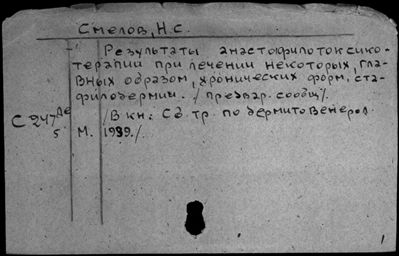 Смелов, Н.С.
Результаты анастофилотоксико-
терапии при лечении некоторых, гла-
вных образом, хронических форм, ста-
филодермии. /Предвар. сообщ/.
/В кн: Сб. тр. по дермитовенерол.
С 247 де
5 М. 1939./
1